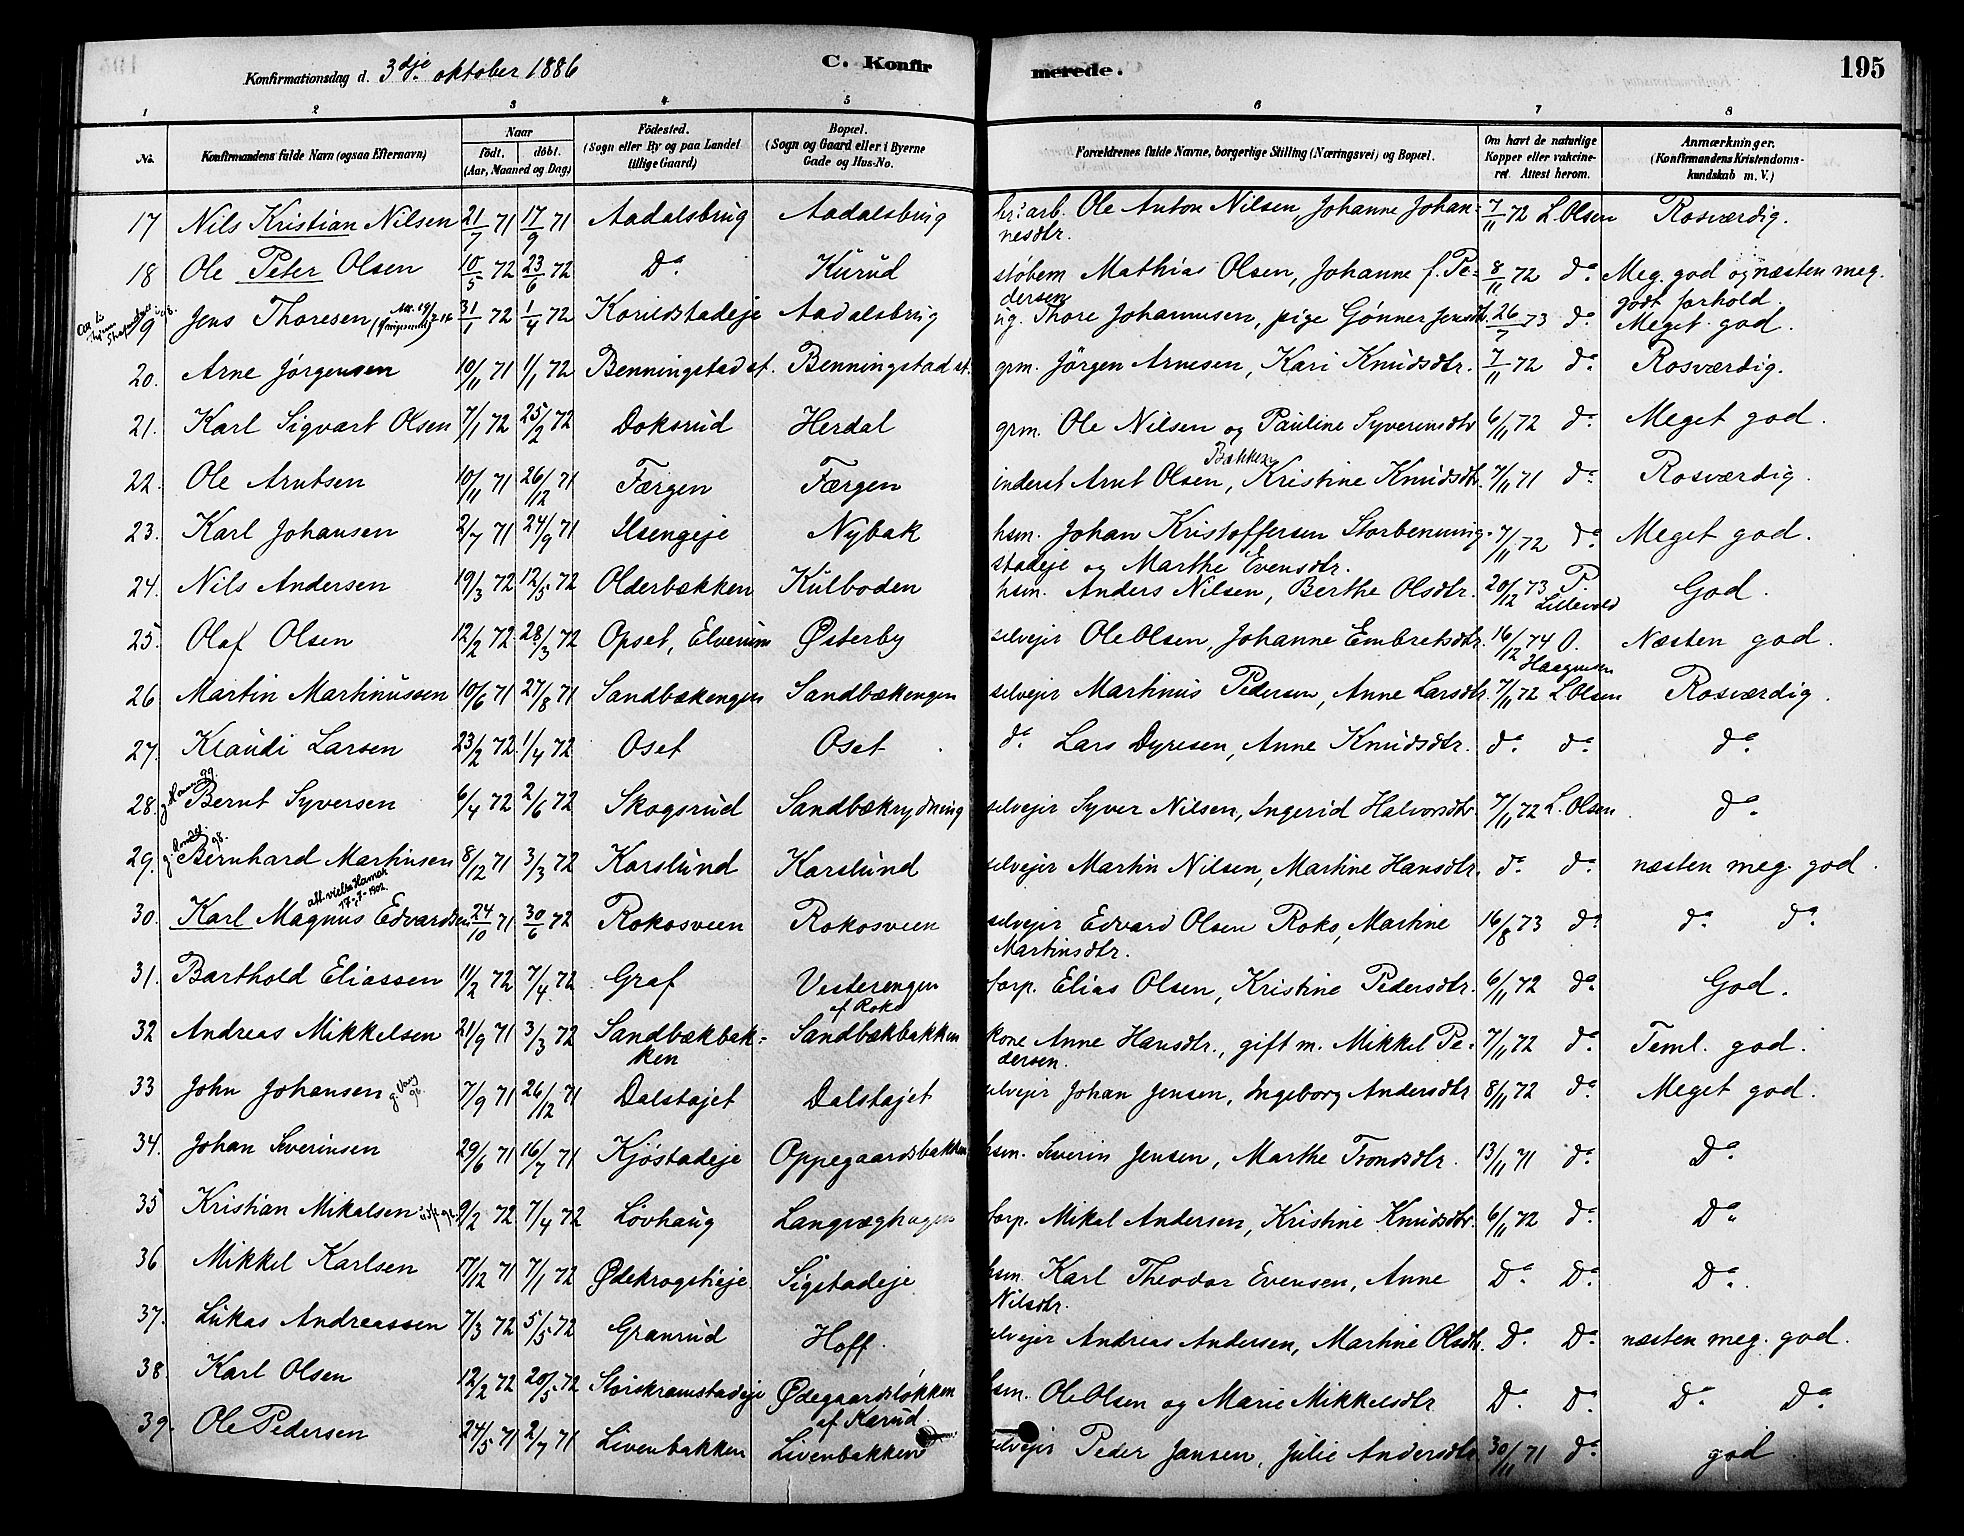 Konfirmationsdag d. 3dje oktober 1886 C. Konfir merede. 195
1 2 3 4 5 6 7 8
No. Konfirmandens fulde Navn (ogsaa Efternavn) Naar født. døbt. (Aar, Maaned og Dag) Fødested. (Sogn eller By og paa Landet tillige Gaard) Bopæl. (Sogn og Gaard eller i Byerne Gade og Hus-No. Forældrenes fulde Navne, borgerlige Stilling (Næringsvei) og Bopæl. Om havt de naturlige Kopper eller vakcineret. Attest herom. Anmærkninger. (Konfirmandens Kristendomskundskab m. V.)
17 Nils Kristian Nilsen 21/7 71 17/9 71 Aadalsbrug Aadalsbrug br. arb. Ole Anton Nilsen, Johanne Johan-
nesdtr. 7/11 72 L. Olsen Rosværdig.
18 Ole Peter Olsen 10/5 72 23/6 72 Do. Kurud støbem Mathias Olsen, Johanne f. Pe-
dersen 8/11 72 do. Meg. god og næsten meg.
godt forhold.
19 Jens Thoresen 31/1 72 1/4 72 Korildstadeje Aadalsbrug ug. Thore Johannesen, pige Gønner Jensdtr. 26/7 73 do. Meget god.
20. Arne Jørgensen 10/11 71 1/1 72 Benningstad st. Benningstad st. grm. Jörgen Arnesen, Kari Knudsdtr. 7/11 72 do. Rosværdig.
21. Karl Sigvart Olsen 7/1 72 25/2 72 Doksrud Herdal grm. Ole Nilsen og Pauline Syverinsdtr 6/11 72 do. Meget god.
22. Ole Arntsen 10/11 71 26/12 71 Færgen Færgen inderst Arnt Olsen Bakken, Kristine Knudsdtr. 7/11 71 do. Rosværdig.
23. Karl Johansen 2/7 71 24/9 71 Ilsengeje Nybak hsm. Johan Kristoffersen Storbenning-
stadeje og Marthe Evensdtr. 7/11 72 do. Meget god.
24. Nils Andersen 19/3 72 12/5 72 Olderbækken Kulboden hsm. Anders Nilsen, Berthe Olsdtr. 20/12 73 P. Lillevold God.
25. Olaf Olsen 12/2 72 28/3 72 Opset, Elverum Østerby selvejer Ole Olsen, Johanne Embretsdtr. 16/12 74 O. Haagensen Næsten god.
26 Martin Martinussen 10/6 71 27/8 71 Sandbækengen Sandbækengen selvejer Martinus Pedersen, Anne Larsdtr. 7/11 72 L Olsen Rosværdig.
27. Klaudi Larsen 23/2 72 1/4 72 Oset Oset do. Lars Dyresen, Anne Knudsdtr. do. do. do.
28. Bernt Syversen 6/4 72 2/6 72 Skogsrud Sandbækrydning selvejer Syver Nilsen, Ingerid Halvorsdtr. 7/11 72 L. Olsen do.
29. Bernhard Martinsen 8/12 71 3/3 72 Karslund Karslund selvejer Martin Nilsen, Martine Hansdtr. do. do. næsten meg. god.
30. Karl Magnus Edvardsen 24/10 71 30/6 72 Rokosveen Rokosveen selvejer Edvard Olsen Roko, Martine
Martinsdtr. 16/8 73 do. do. do.
att. vielse Hamar 17-7-1902
31. Barthold Eliassen 11/2 72 7/4 72 Graf Vesterengen
af Roko forp. Elias Olsen, Kristine Pedersdtr. 6/11 72 do. God.
32 Andreas Mikkelsen 21/9 71 3/3 72 Sandbækbak-
ken Sandbækbakken kone Anne Hansdtr., gift m. Mikkel Pe-
dersen. 7/11 72 do. Teml. god.
33 John Johansen 7/9 71 26/12 71 Dalstøjet Dalstøjet selvejer Johan Jensen, Ingeborg Andersdtr 8/11 72 do. Meget god.
34. Johan Severinsen 29/6 71 16/7 71 Kjöstadeje Oppegaardsbakken hsm. Severin Jensen, Marthe Trondsdtr. 13/11 71 do. Do.
35 Kristian Mikalsen 9/2 72 7/4 72 Lövhaug Langvæghagen forp. Mikal Andersen, Kristine Knudsdtr. 6/11 72 do. Do.
36 Mikkel Karlsen 17/12 71 7/1 72 Ødekrogstieje Sigstadeje hsm. Karl Theodor Evensen, Anne
Nilsdtr. Do. Do. Do.
37. Lukas Andreassen 7/3 72 5/5 72 Granrud Hoff. selvejer Andreas Andersen, Martine Olsdtr. Do. Do. næsten meg. god.
38. Karl Olsen 12/2 72 20/5 72 Storskramstadeje Ødegaardsløkken
af Kærud. hsm. Ole Olsen og Marie Mikkelsdtr Do. Do. Do. Do.
39. Ole Pedersen 24/5 71 2/7 71 Livenbakken Livenbakken selvejer Peder Jansen, Julie Andersdtr 30/11 71 do. god